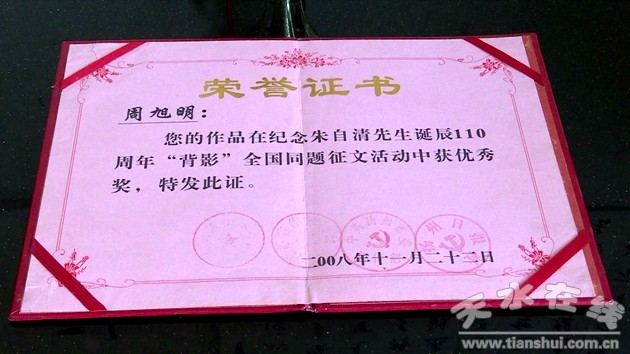 荣誉证书
周旭明：
您的作品在纪念朱自清先生诞辰110
周年“背影”全国同题征文活动中获优秀
奖，特发此证。
扬州日报
二00八年十一月二十二日
天水在线
www.tianshui.com.cn